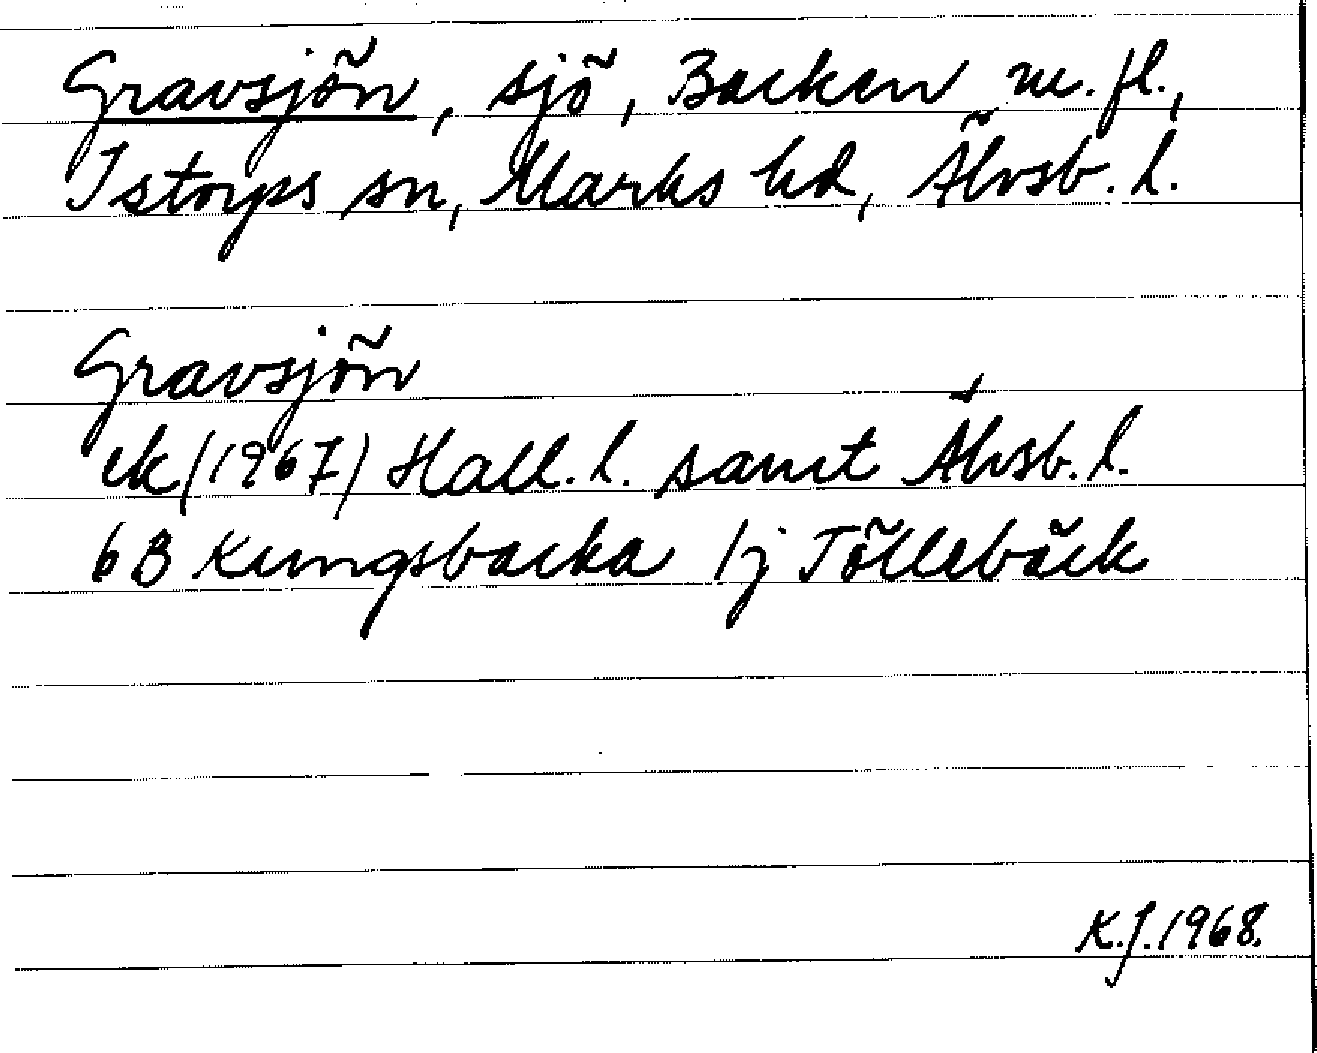 Gravsjön, sjö, Backen m. fl.,
Istorps sn, Marks hd, Älvsb. l.
Gravsjön
ek (1967) Hall. l. samt Älvsb. l.
6B Kungsbacka 1j Töllebäck
K.J. 1968.